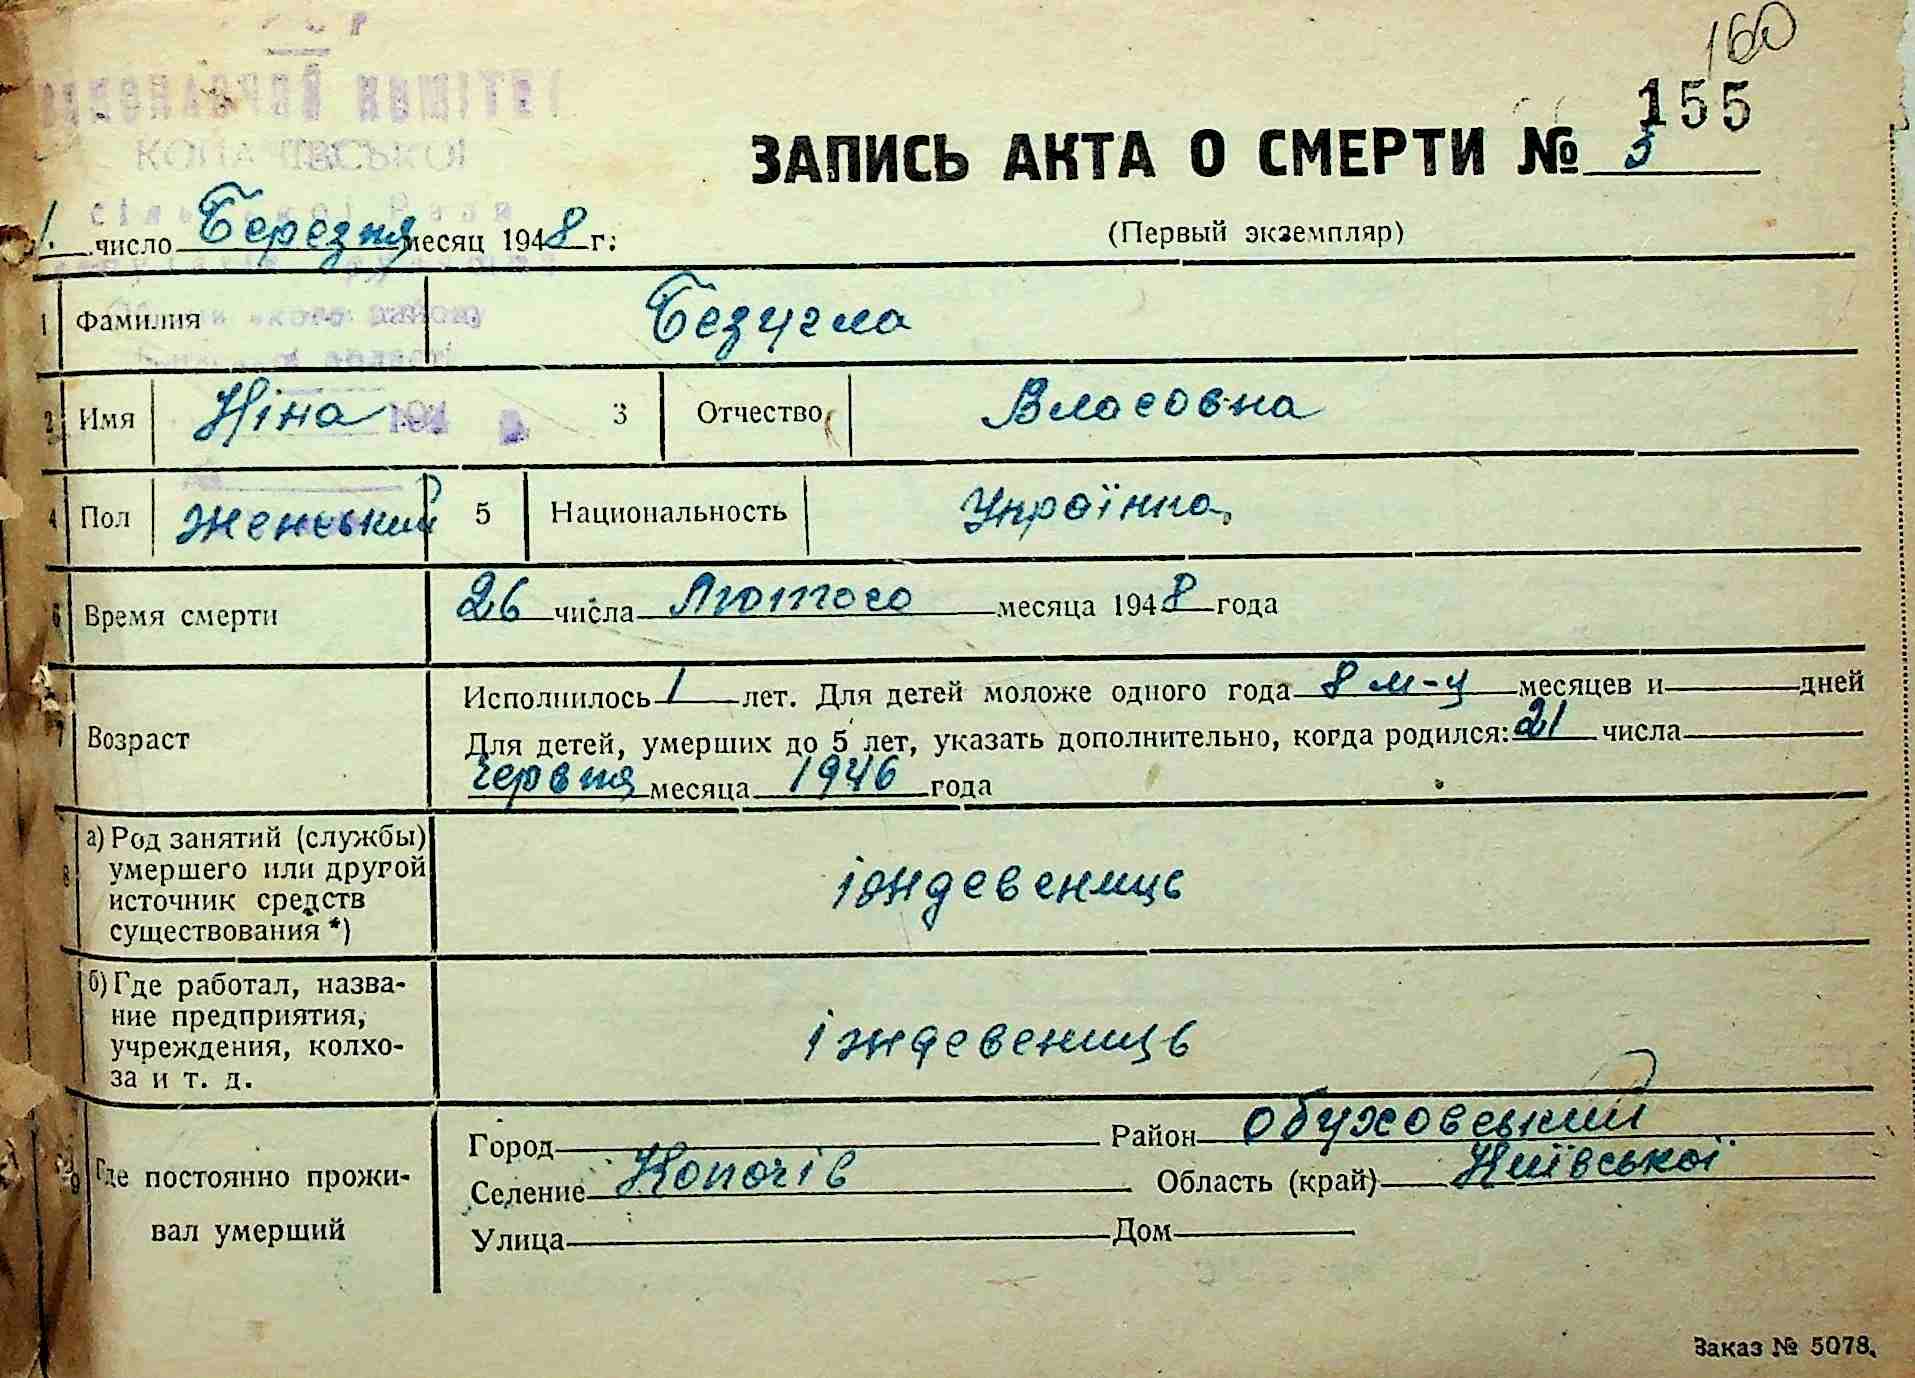 160
155
КОПАЧІВСЬКОЇ
ЗАПИСЬ АКТА О СМЕРТИ № 5
(Первый экземпляр)
1. число Березня месяц 1948 г.
1 Фамилия Безугла
2 Имя Ніна 3 Отчество Власовна
4 Пол женський 5 Национальность Українка
6 Время смерти 26 числа Лютого месяца 1948 года
7 Возраст Исполнилось 1 лет. Для детей моложе одного года 8 м-ц месяцев и дней
Для детей, умерших до 5 лет, указать дополнительно, когда родился: 21 числа
Червня месяца 1946 года
8 а) Род занятий (службы)
умершего или другой
источник средств
существования *)
іждевениць
б) Где работал, назва-
ние предприятия,
учреждения, колхо-
за и т. д.
іждевениць
9 Где постоянно прожи-
вал умерший
Город Район Обуховський
Селение Копачів Область (край) Київської
Улица Дом
Заказ № 5078.